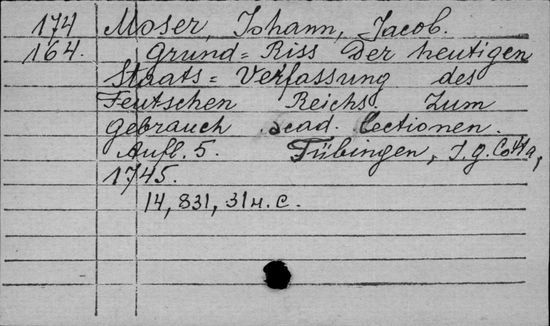 174 Moser, Johann, Jacob.
164. Grund=Riss Der heutigen
Staats=Verfassung des
Teutschen Reichs. Zum
Gebrauch acad. Lectionen.
Aufl. 5. Tübingen, J.G. Cotta,
1745.
14, 831, 31 н. с.